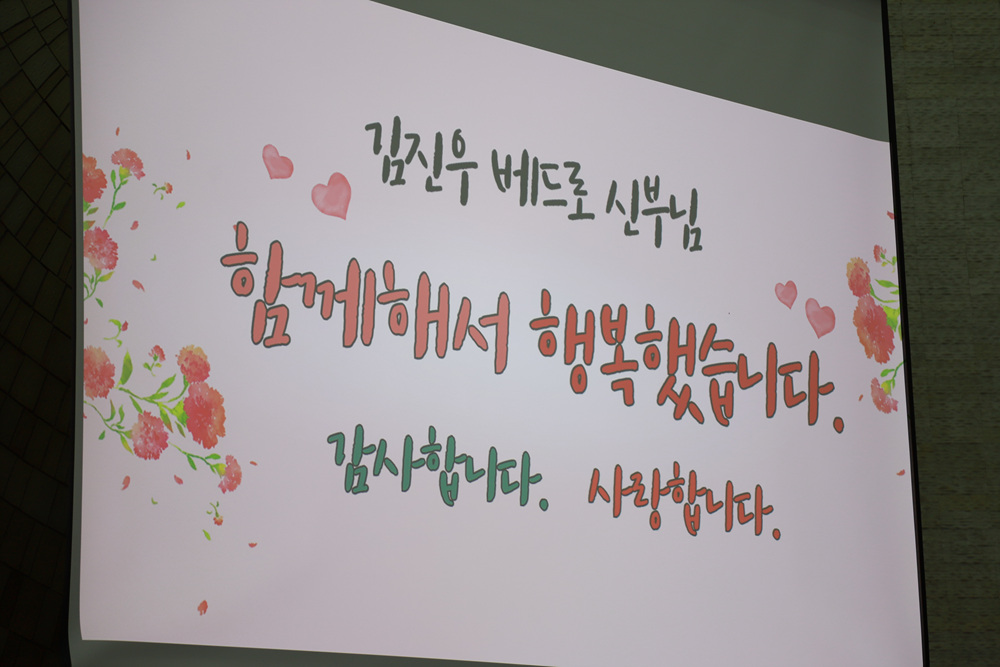 김진우 베드로 신부님
함께해서 행복했습니다.
감사합니다. 사랑합니다.